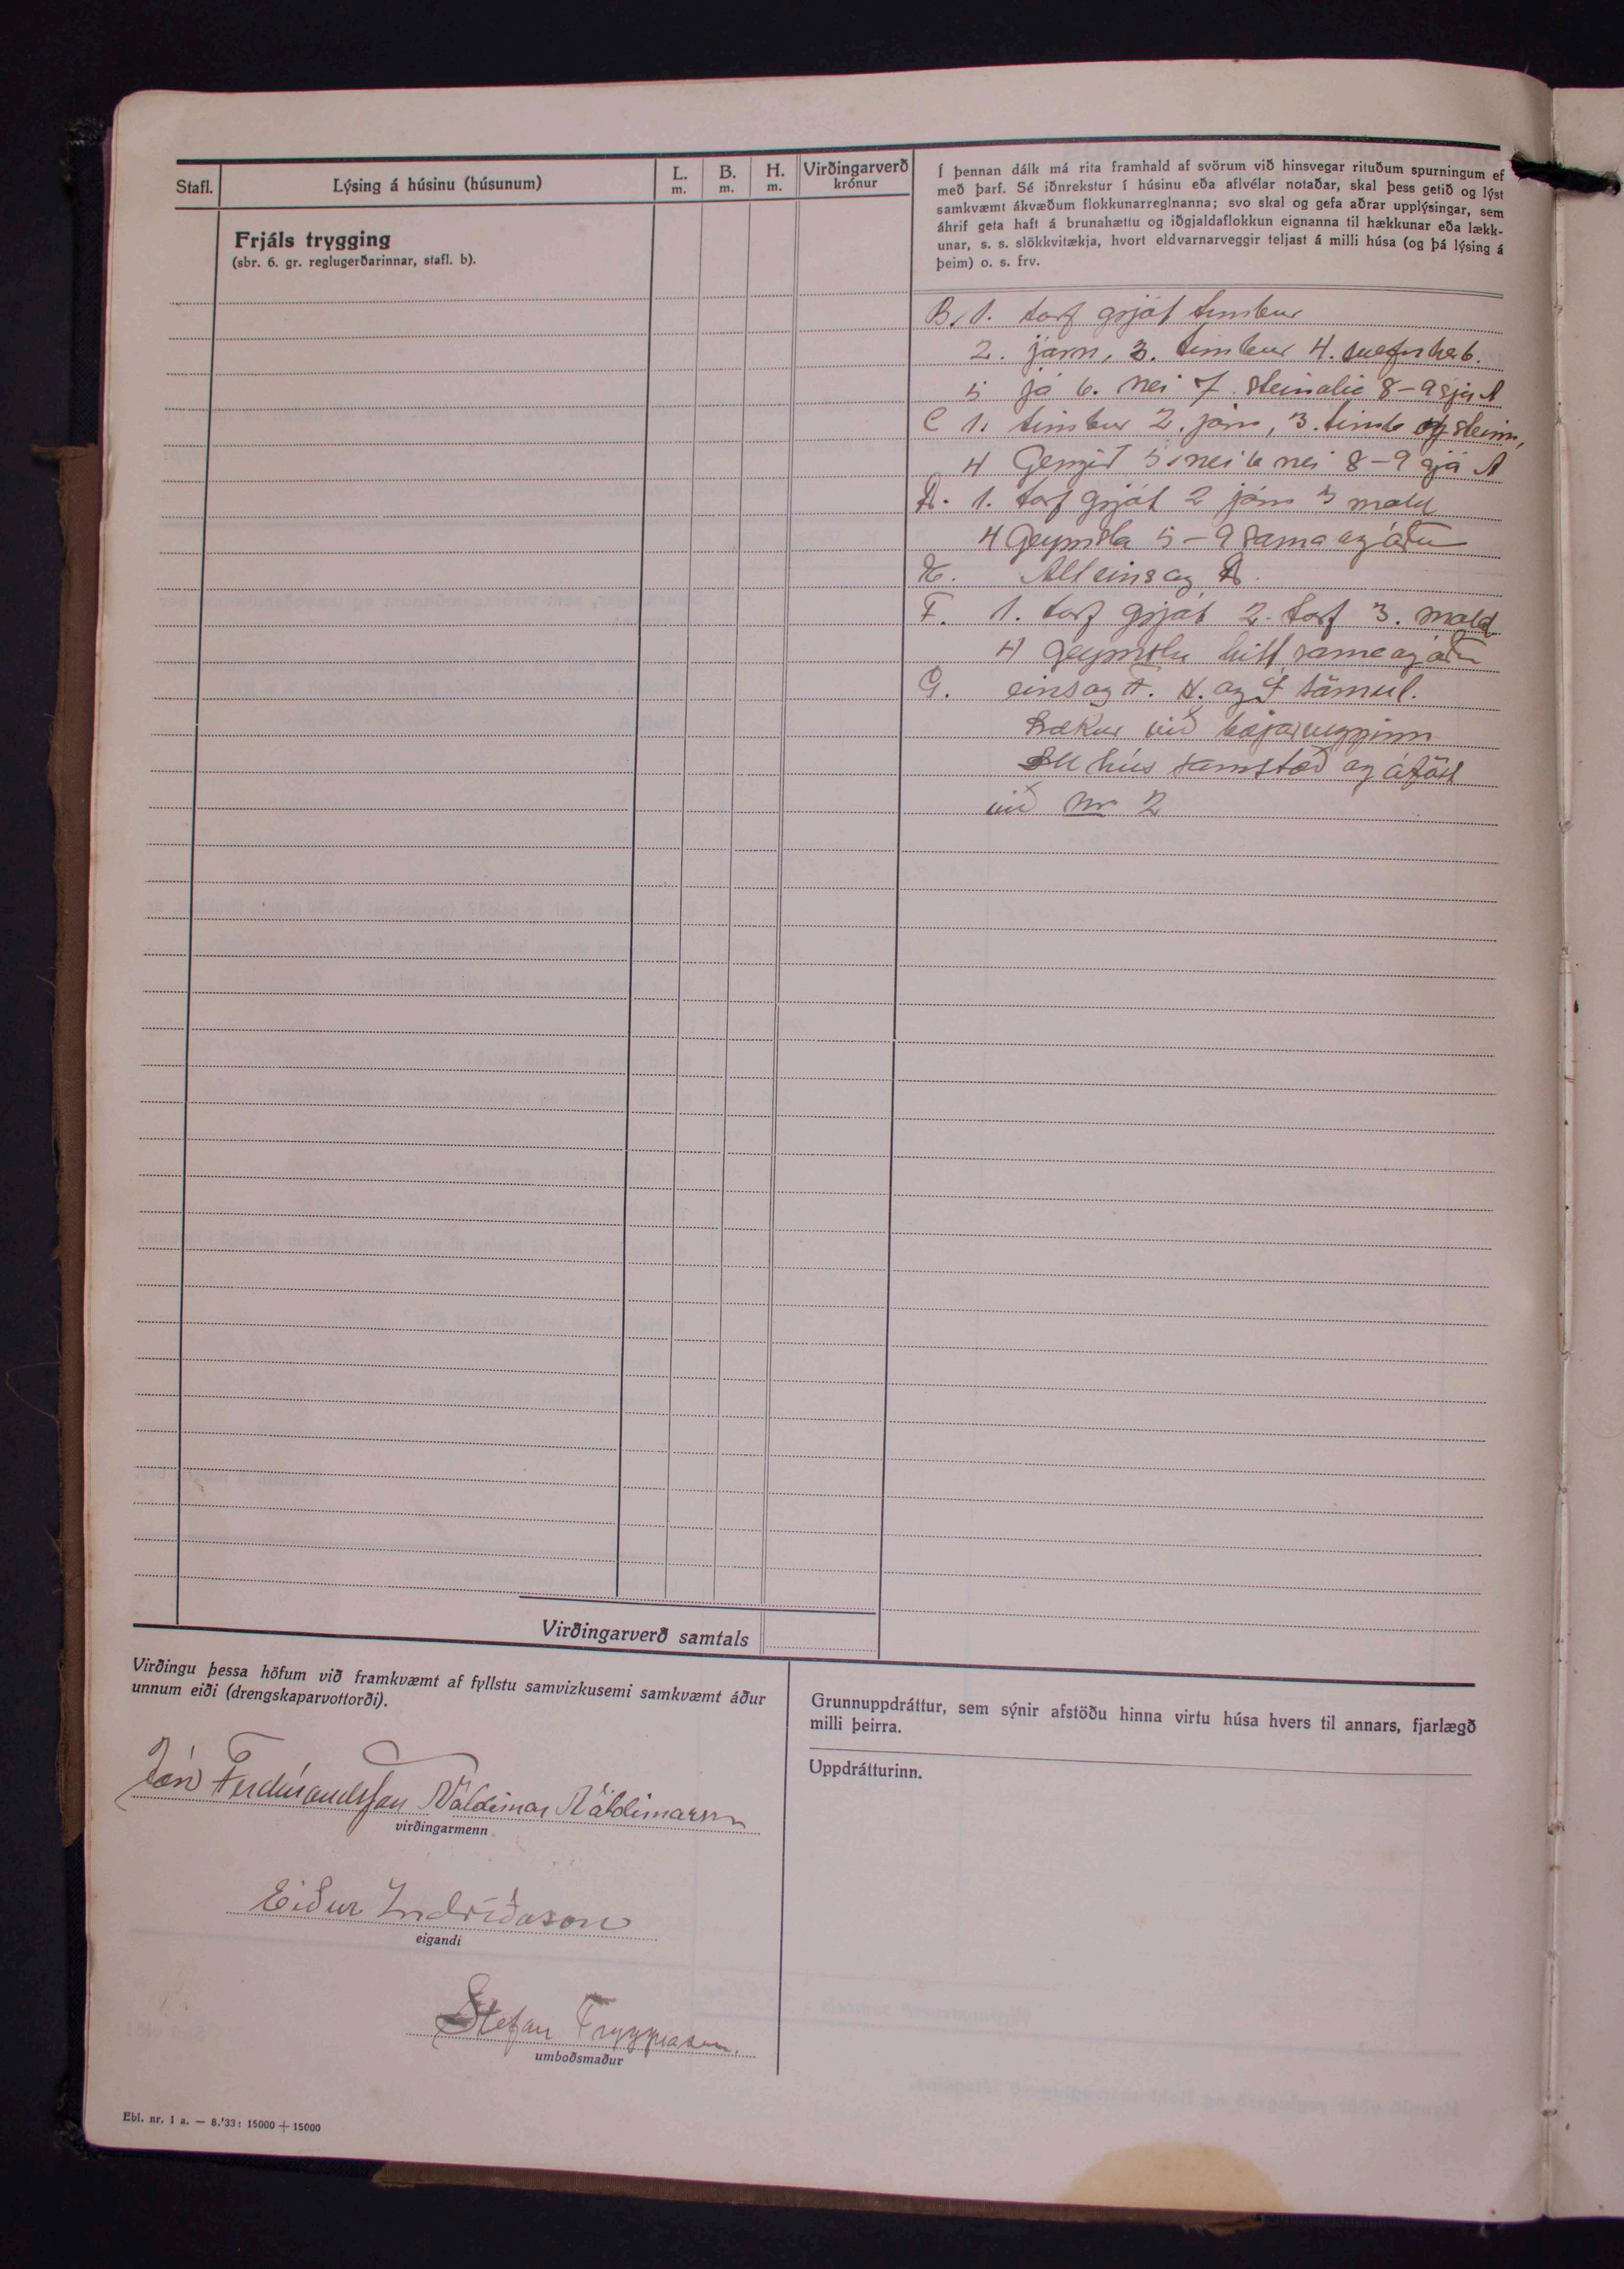 Stafl.
Lýsing á húsinu (húsunum)
L.
m.
B.
m.
H.
m.
Virðingarverð
krónur
Frjáls trygging
(sbr. 6. gr. reglugerðarinnar, stafl. b).
Í þennan dálk má rita framhald af svörum við hinsvegar rituðum spurningum ef
með þarf. Sé iðnrekstur í húsinu eða aflvélar notaðar, skal þess getið og lýst
samkvæmt ákvæðum flokkunarreglnanna; svo skal og gefa aðrar upplýsingar, sem
áhrif geta haft á brunahættu og iðgjaldaflokkun eignanna til hækkunar eða lækk-
unar, s. s. slökkvitækja, hvort eldvarnarveggir teljast á milli húsa (og þá lýsing á
þeim) o. s. frv.
B, 1. torf grjót timbur
2. járn, 3. timbur 4. svefnherb.
5 já 6. nei 7. steinolia 8-9 sjá A
C 1. timbur 2. járn, 3. timb og steinn,
4 Gengið 5. nei 6 nei 8-9 sjá A
D. 1. torf grjót 2 járn 3 mold
4 Geymsla 5-9 sama og áður
E. Alt eins og D.
F. 1. torf grjót 2. torf 3. mold
4 Geymslu hitt sama og áður
G. eins og F. sömul.
Lækur við bæjarvegginn
Öll hús samstæð og áföst
við nr 2
Virðingarverð samtals
Virðingu þessa höfum við framkvæmt af fyllstu samvizkusemi samkvæmt áður
unnum eiði (drengskaparvottorði).
Jón Ferdínandsson Valdimar Valdimarsson
virðingarmenn
Eiður Indriðason
eigandi
Stefán Tryggvason.
umboðsmaður
Grunnuppdráttur, sem sýnir afstöðu hinna virtu húsa hvers til annars, fjarlægð
milli þeirra.
Uppdrátturinn.
Ebl. nr. 1 a. — 8.'33: 15000 + 15000